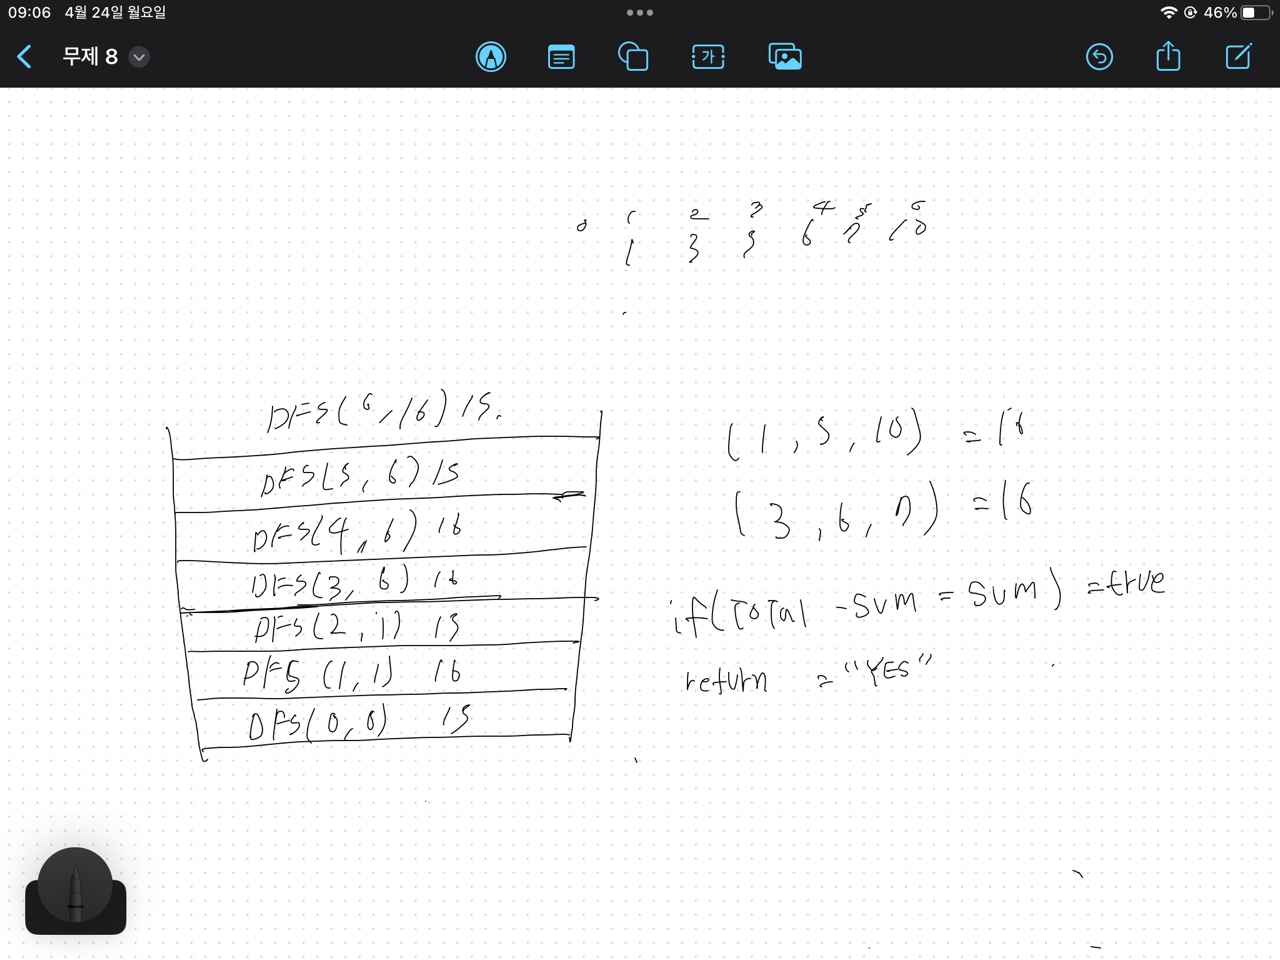 09:06 4월 24일 월요일 46%
무제 8
가
0 1 2 3 4 5 6
1 3 5 6 7 10
DFS(6,16) 15.
DFS(5, 6) 15
DFS(4, 6) 16
DFS(3, 6) 16
DFS(2, 1) 15
DFS (1, 1) 16
DFS(0, 0) 15
(1, 5, 10) = 16
(3, 6, 7) = 16
if(Total - sum = sum) = true
return = "YES"